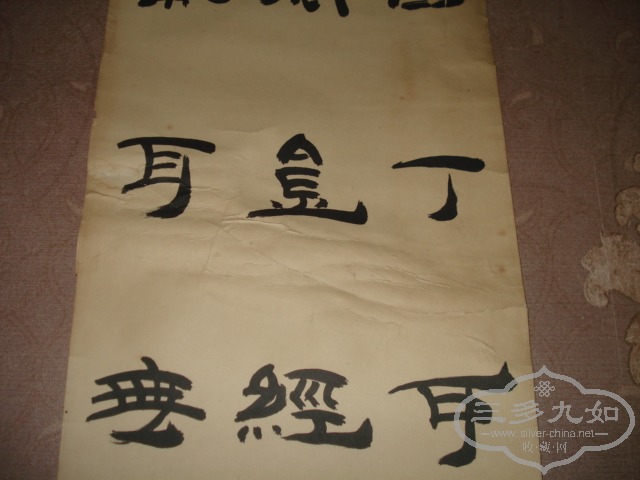 丁可
金經
耳無
三多九如
www.silver-china.net
收·藏·网